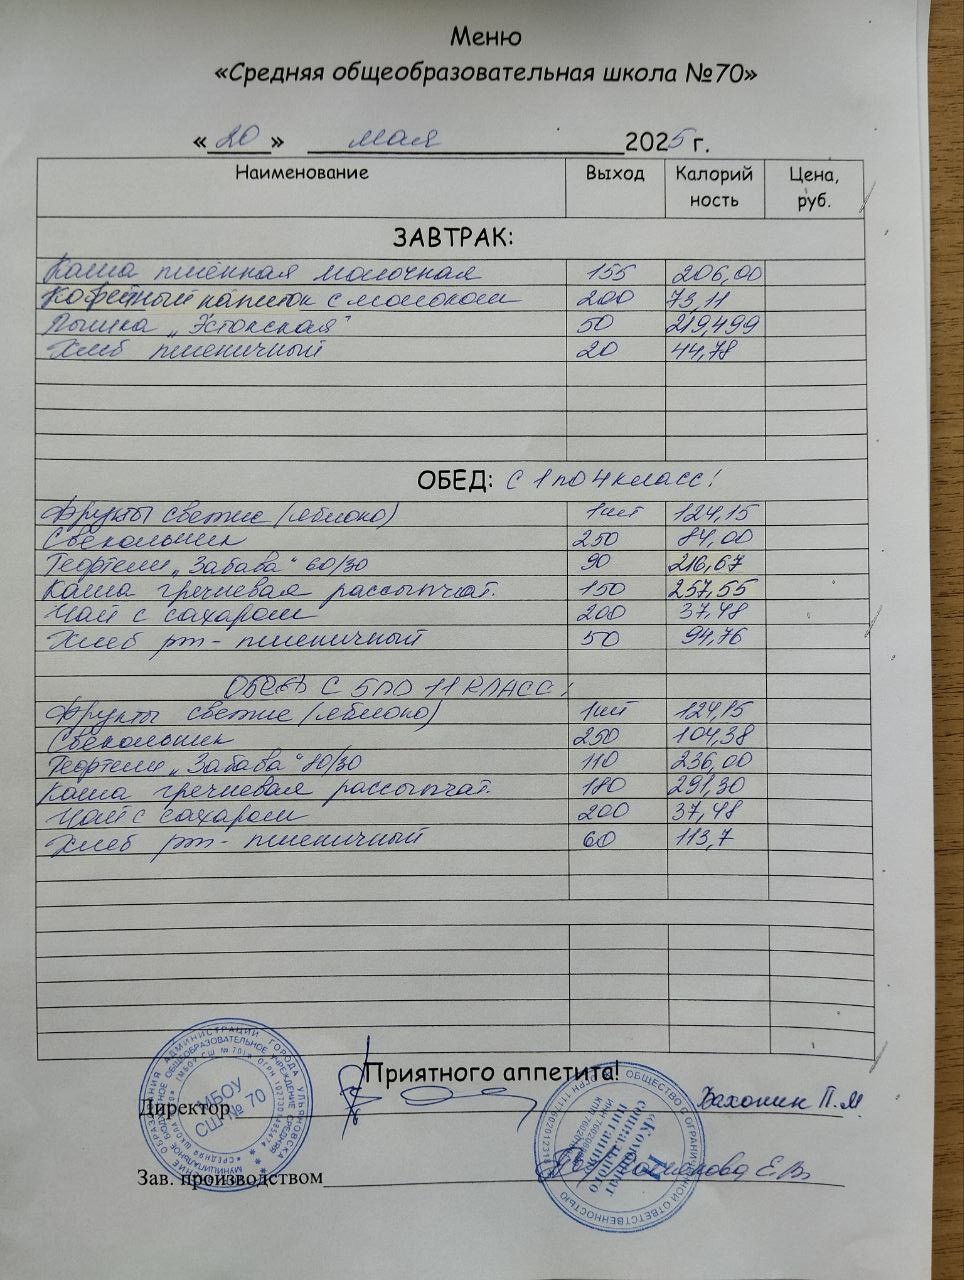 Меню
«Средняя общеобразовательная школа №70»
«20» мая 2025 г.
Наименование Выход Калорий ность Цена, руб.
ЗАВТРАК:
Каша пшенная молочная 155 206,00
Кофейный напиток с молоком 200 73,11
Пышка „Эстонская" 50 219,499
Хлеб пшеничный 20 44,78
ОБЕД: с 1 по 4 класс!
Фрукты свежие (яблоко) 1шт 124,15
Свекольник 250 84,00
Тефтели „Забава" 60/30 90 216,67
Каша гречневая рассыпчат. 150 257,55
Чай с сахаром 200 37,48
Хлеб рж - пшеничный 50 94,76
ОБЕД С 5 ПО 11 КЛАСС!
Фрукты свежие (яблоко) 1шт 124,15
Свекольник 250 104,38
Тефтели „Забава" 80/30 110 236,00
Каша гречневая рассыпчат. 180 291,30
Чай с сахаром 200 37,48
Хлеб рж - пшеничный 60 113,7
Приятного аппетита!
Директор П.М
МБОУ
СШ № 70
Зав. производством Е.В.